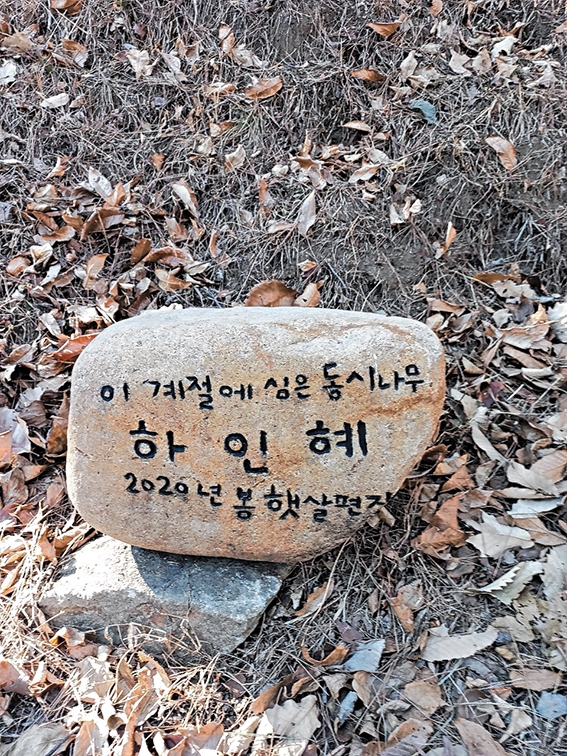 이 계절에 심은 동시나무
하인혜
2020년 봄 햇살편지